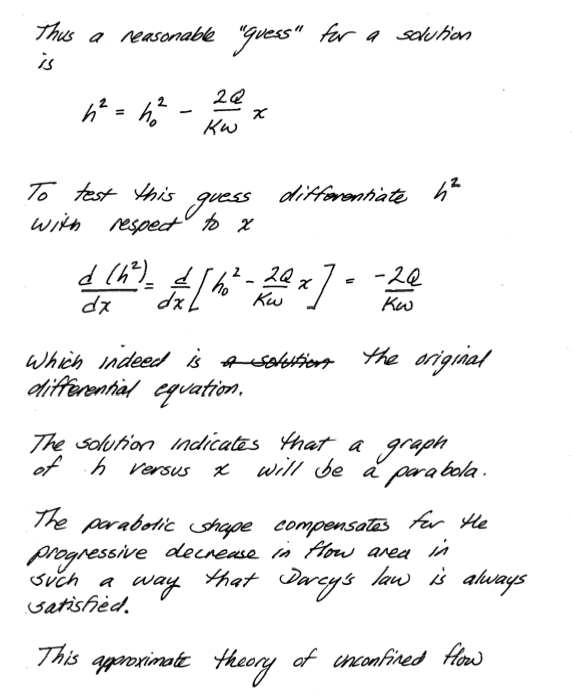 Thus a reasonable "guess" for a solution
is
h² = h₀² - 2Q/Kw x
To test this guess differentiate h²
with respect to x
d(h²)/dx = d/dx [h₀² - 2Q/Kw x] = -2Q/Kw
which indeed is a solution the original
differential equation.
The solution indicates that a graph
of h versus x will be a parabola.
The parabolic shape compensates for the
progressive decrease in flow area in
such a way that Darcy's law is always
satisfied.
This approximate theory of unconfined flow